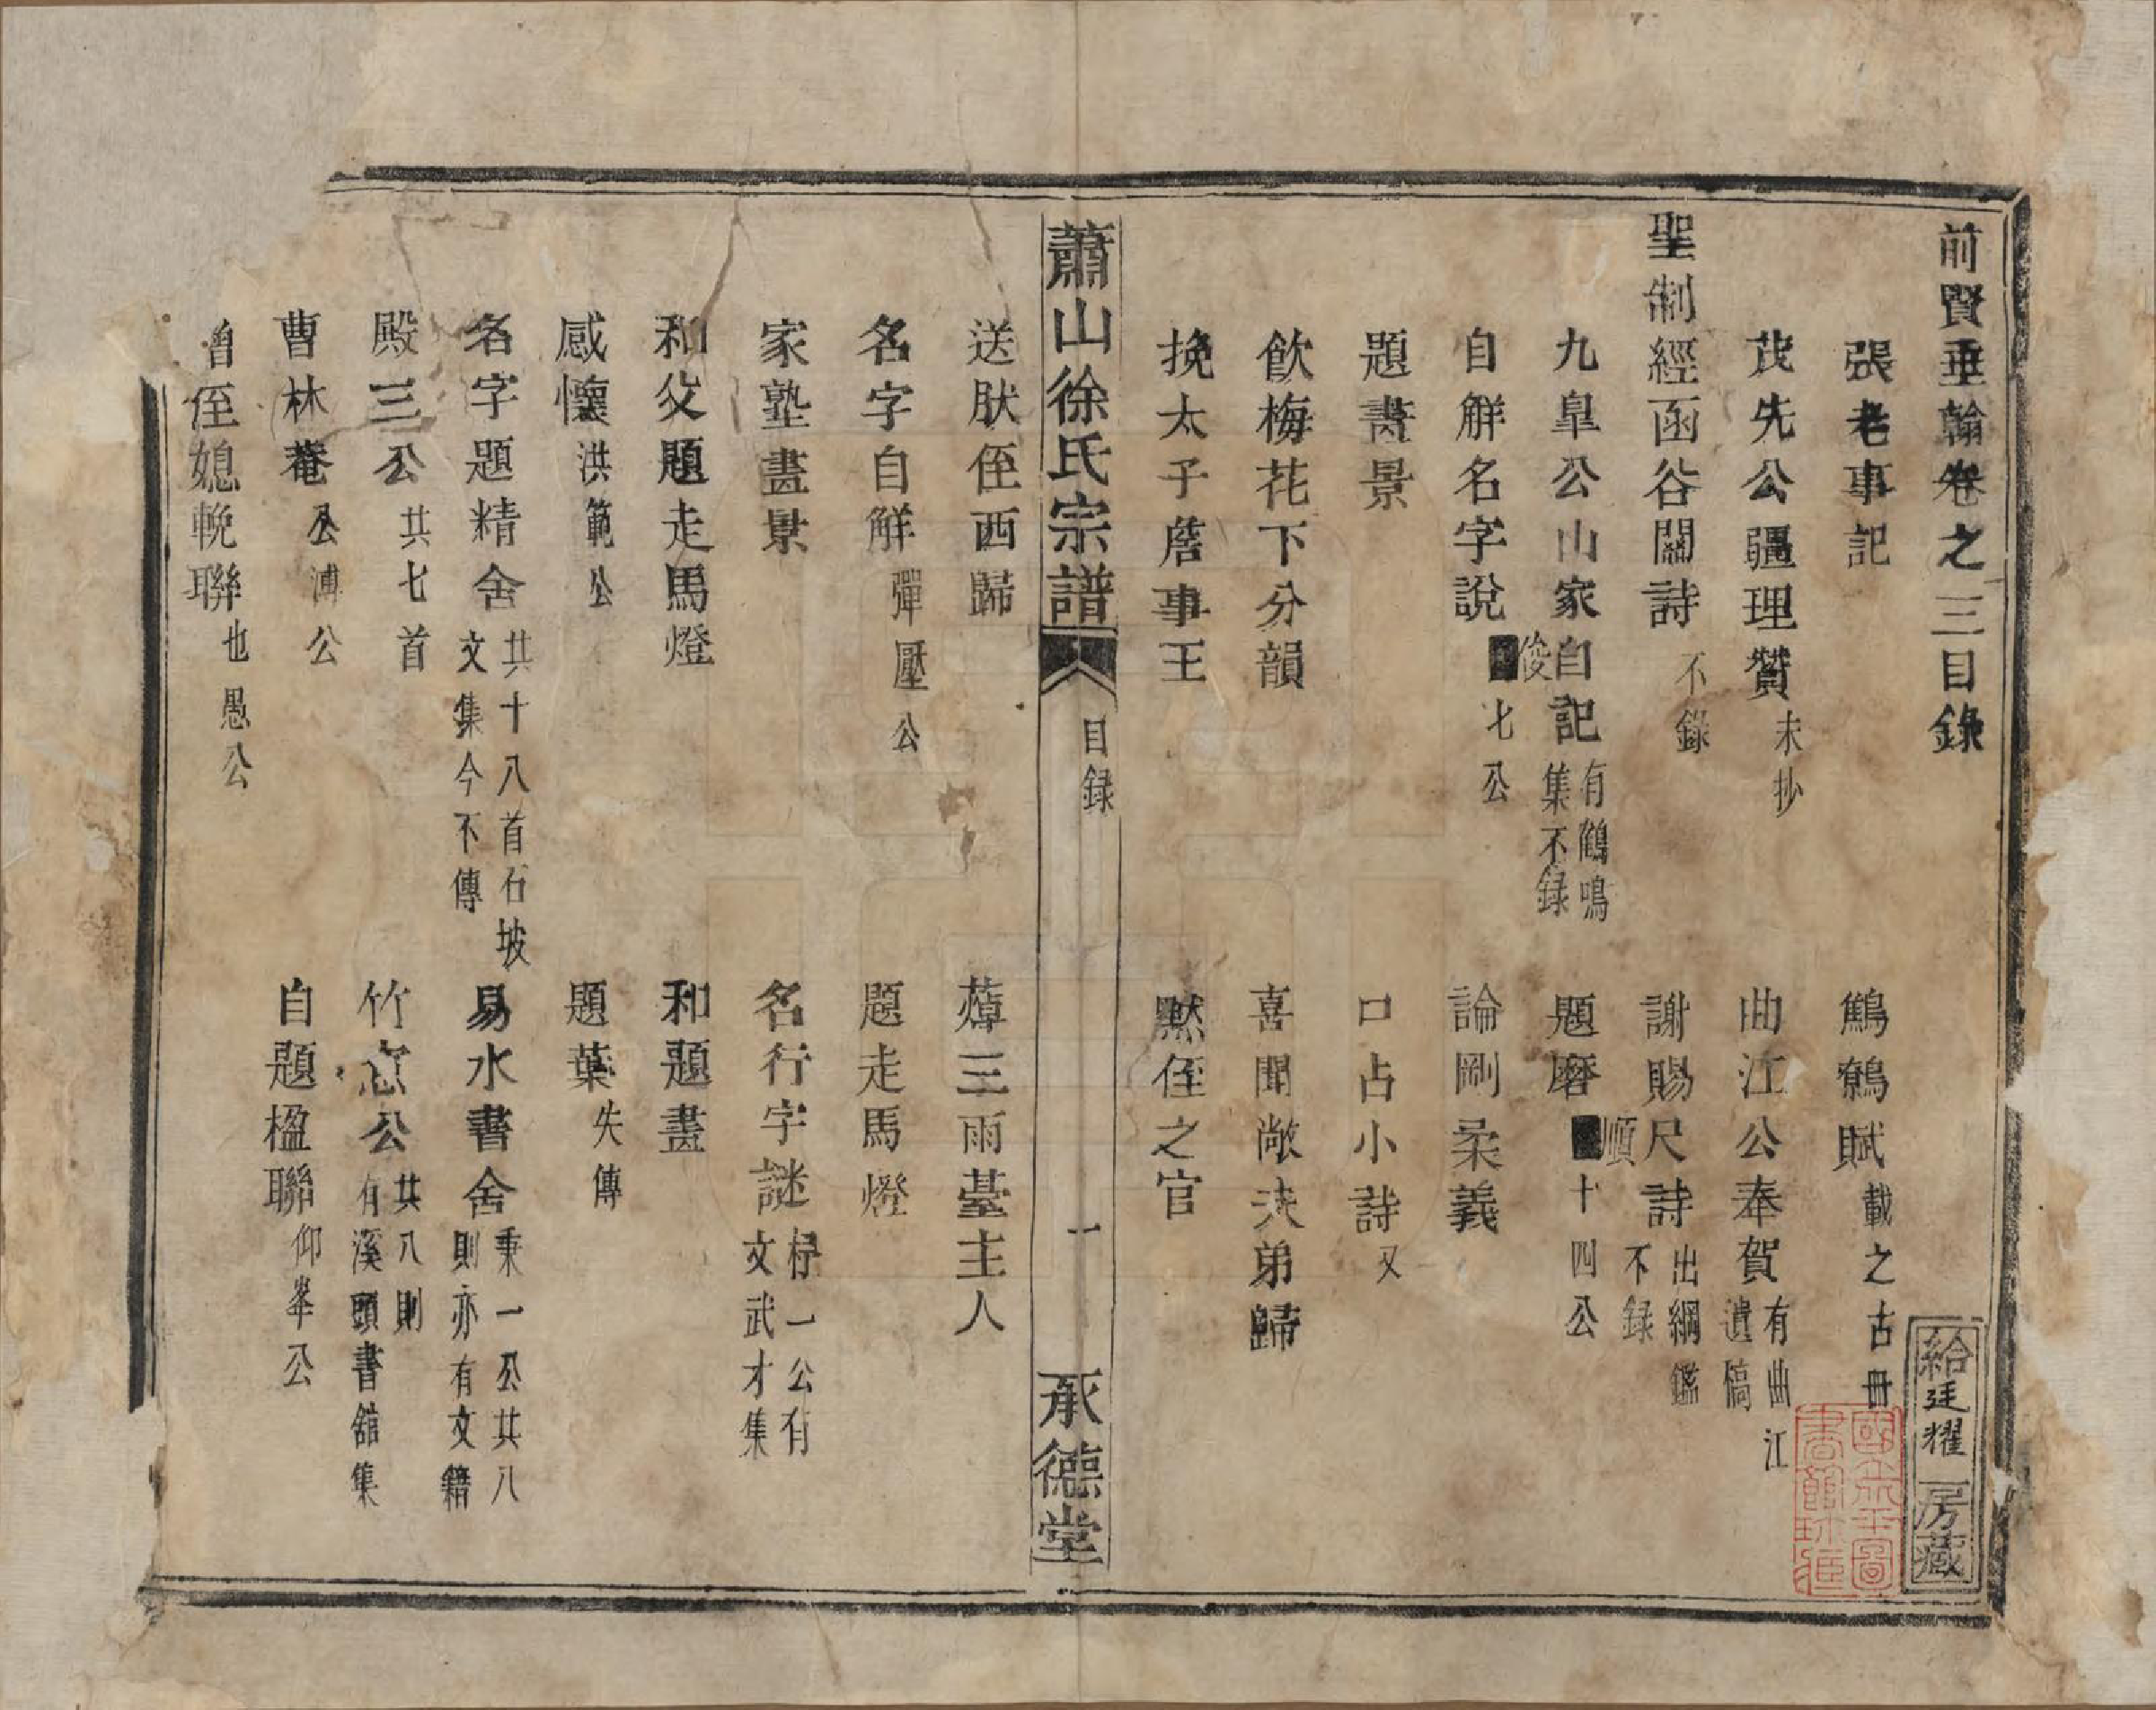 前賢垂翰卷之三目錄
給廷耀一房藏
張老事記
鷦鷯賦 載之古冊
茂先公疆理贊 未抄
曲江公奉賀 有曲江遺稿
聖制經函谷關詩 不錄
謝賜尺詩 出綱鑑不録
九皐公山家自記 有鶴鳴集不録
題磨 順十四公
自觧名字說 俊七公
論剛柔義
題畵景
口占小詩 又
飲梅花下分韻
喜聞敞夫弟歸
挽太子詹事王
㸃侄之官
蕭山徐氏宗譜
目録
一
承德堂
送肰侄西歸
三雨臺主人
名字自觧 彈壓公
題走馬燈
家塾畫景
名行字謎 杼一公有文武才集
和父題走馬燈
和題畫
感懷 洪範公
題葉 失傳
名字題精舍 共十八首石坡文集今不傳
易水書舍 秉一公共八則亦有文籍
殿三公 共七首
竹窓公 共八則有溪頭書舘集
曹林菴 公溥公
自題楹聯 仰峯公
曾侄媳輓聯 也愚公